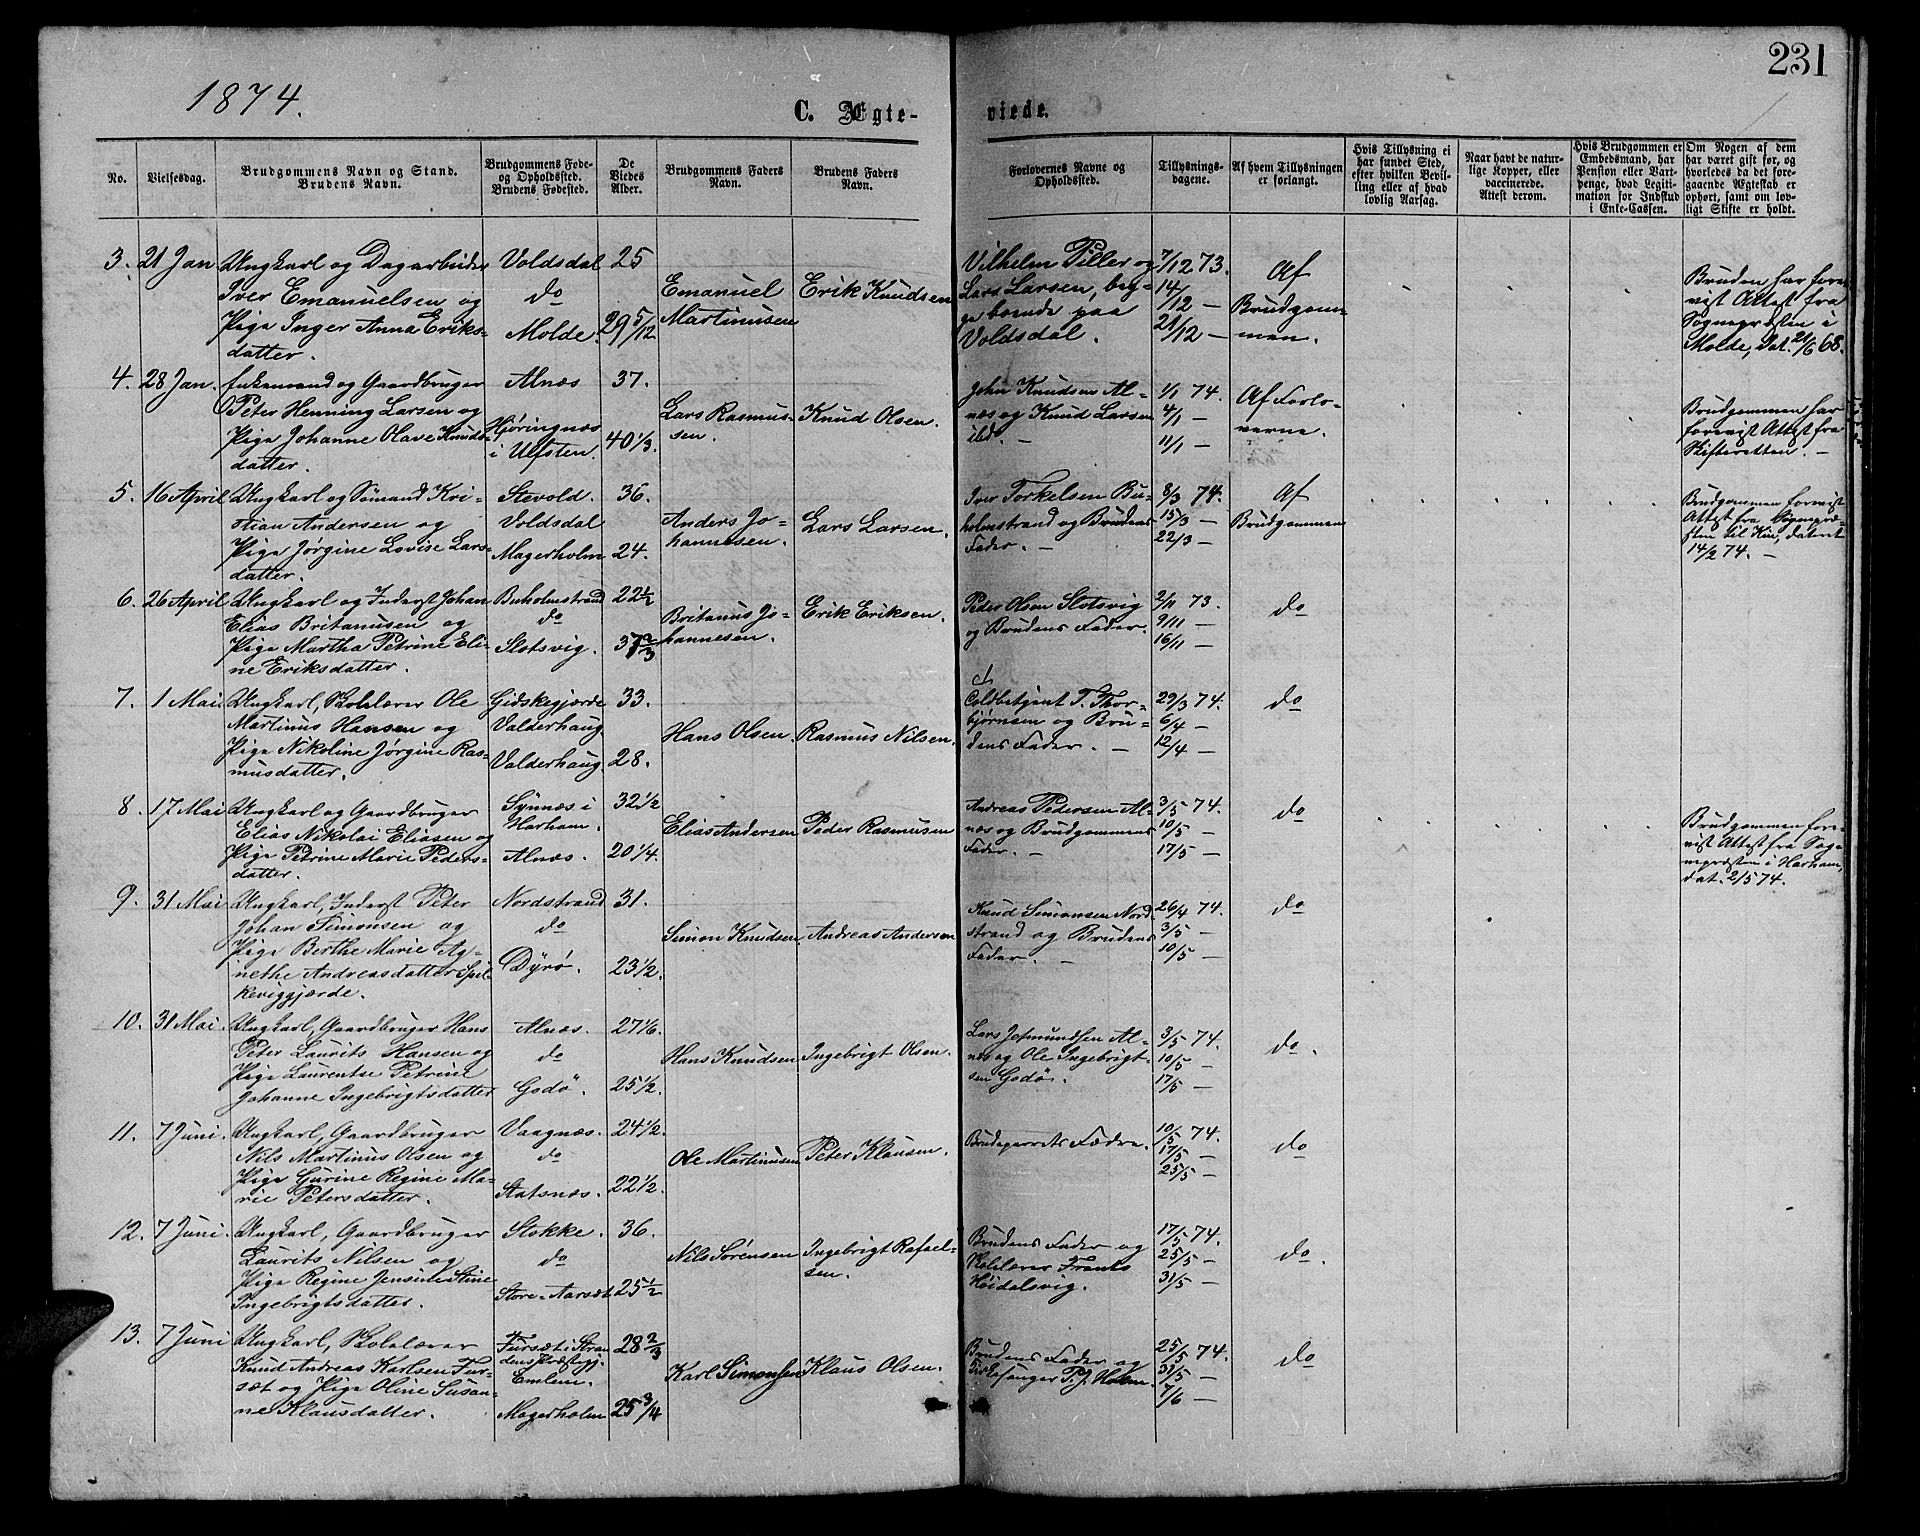 231
1874.
C. Ægte-
viede.
No.
Vielsesdag.
Brudgommens Navn og Stand.
Brudens Navn.
Brudgommens Føde-
og Opholdssted.
Brudens Fødested.
De
Viedes
Alder.
Brudgommens Faders
Navn.
Brudens Faders
Navn.
Forlovernes Navne og
Opholdssted.
Tillysnings-
dagene.
Af hvem Tillysningen
er forlangt.
Hvis Tillysning ei
har fundet Sted,
efter hvilken Bevil-
ling eller af hvad
lovlig Aarsag.
Naar havt de natur-
lige Kopper, eller
vaccinerede.
Attest derom.
Hvis Brudgommen er
Embedsmand, har
Pension eller Vart-
penge, hvad Legiti-
mation for Indskud
i Enke-Cassen.
Om Nogen af dem
har været gift før, og
hvorledes da det fore-
gaaende Ægteskab er
ophørt, samt om lov-
ligt Skifte er holdt.
3. 21 Jan
Ungkarl og Dagarbeider
Iver Emanuelsen og
Pige Inger Anna Eriks-
datter.
Voldsdal
do
Molde.
25
29 5/12
Emanuel
Martinusen
Erik Knudsen
Vilhelm Piller og
Lars Larsen, beg-
ge boende paa
Voldsdal.
7/12 73.
14/12 —
21/12 —
Af
Brudgom-
men.
Bruden har fore-
vist Attest fra
Sognepræsten i
Molde, dat. 21/6 68.
4. 28 Jan.
Enkemand og Gaardbruger
Peter Henning Larsen og
Pige Johanne Olave Knuds-
datter.
Alnæs
Hjøringnæs
i Ulfsten.
37.
40 1/3
Lars Rasmus-
sen.
Knud Olsen.
John Knudsen Al-
næs og Knud Larsen
ibd. —
1/1 74.
4/1 —
11/1 —
Af Forlo-
verne.
Brudgommen har
forevist Attest fra
Skifteretten. —
5. 16 April
Ungkarl og Sømand Kri-
stian Andersen og
Pige Jørgine Lovise Lars-
datter.
Stevold.
Voldsdal
Magerholm
36.
24.
Anders Jo-
hannesen.
Lars Larsen.
Iver Torkelsen Bu-
holmstrand og Brudens
Fader. —
8/3 74.
15/3 —
22/3 —
Af
Brudgommen
Brudgommen forevist
Attest fra Sognepræ-
sten til Kin, dateret
14/2 74. —
6. 26 April
Ungkarl og Inderst Johan
Elias Britanusen og
Pige Martha Petrine Eli-
ne Eriksdatter.
Buholmstrand
do
Slotsvig.
22 1/2
37 2/3
Britanus Jo-
hannesen.
Erik Eriksen.
Peder Olsen Slotsvig
og Brudens Fader.
2/11 73.
9/11 —
16/11 —
do
7. 1 Mai
Ungkarl, Skolelærer Ole
Martinus Hansen og
Pige Nikoline Jørgine Ras-
musdatter.
Gidskegjerde
Valderhaug
Valderhaug.
33.
28.
Hans Olsen.
Rasmus Nilsen.
Toldbetjent T. Thor-
bjørnsen og Bru-
dens Fader. —
29/3 74.
6/4 —
12/4 —
do
8. 17 Mai
Ungkarl og Gaardbruger
Elias Nikolai Eliasen og
Pige Petrine Marie Peders-
datter.
Synnæs i
Harham.
Alnæs.
32 1/2
20 1/4.
Elias Andersen
Peder Rasmusen
Andreas Pedersen Al-
næs og Brudgommens
Fader. —
3/5 74.
10/5 —
17/5 —
do
Brudgommen fore-
vist Attest fra Sog-
nepræsten i Harham,
dat. 2/5 74.
9. 31 Mai
Ungkarl, Inderst Peter
Johan Simonsen og
Pige Berthe Marie Ag-
nethe Andreasdatter Spil-
keviggjærde.
Nordstrand
do
Dyrø.
31.
23 1/2.
Simon Knudsen
Andreas Andersen
Knud Simonsen Nord-
strand og Brudens
Fader. —
26/4 74.
3/5 —
10/5 —
do
10. 31 Mai.
Ungkarl, Gaardbruger Hans
Peter Laurits Hansen og
Pige Laurentse Petrine
Johanne Ingebrigtsdatter
Alnæs.
do
Godø.
27 1/6.
25 1/2.
Hans Knudsen
Ingebrigt Olsen.
Lars Jetmundsen Al-
næs og Ole Ingebrigt-
sen Godø.
3/5 74.
10/5 —
17/5 —
do.
11. 7 Juni.
Ungkarl, Gaardbruger
Nils Martinus Olsen og
Pige Gurine Regine Ma-
rie Petersdatter.
Vaagnæs.
do
Statsnæs.
24 1/2.
22 1/2.
Ole Martinusen
Peter Klausen.
Brudeparrets Fædre.
10/5 74.
17/5 —
25/5 —
do
12. 7 Juni.
Ungkarl, Gaardbruger
Laurits Nilsen og
Pige Regine Jensine Stine
Ingebrigtsdatter.
Stokke.
do
Store-Aarsæt.
36.
25 1/2
Nils Sørensen
Ingebrigt Rafael-
sen.
Brudens Fader og
Skolelærer Frants
Høidalsvig.
17/5 74.
25/5 —
31/5 —
do.
13. 7 Juni
Ungkarl, Skolelærer
Knud Andreas Karlsen Fur-
sæt og Pige Oline Susan-
ne Klausdatter.
Fursæt i Stran-
dens Præstegj.
Emlem.
Magerholm
28 2/3
25 3/4
Karl Simonsen
Klaus Olsen.
Brudens Fader og
Kirkesanger P. J. Holm.
25/5 74.
31/5 —
7/6 —
do